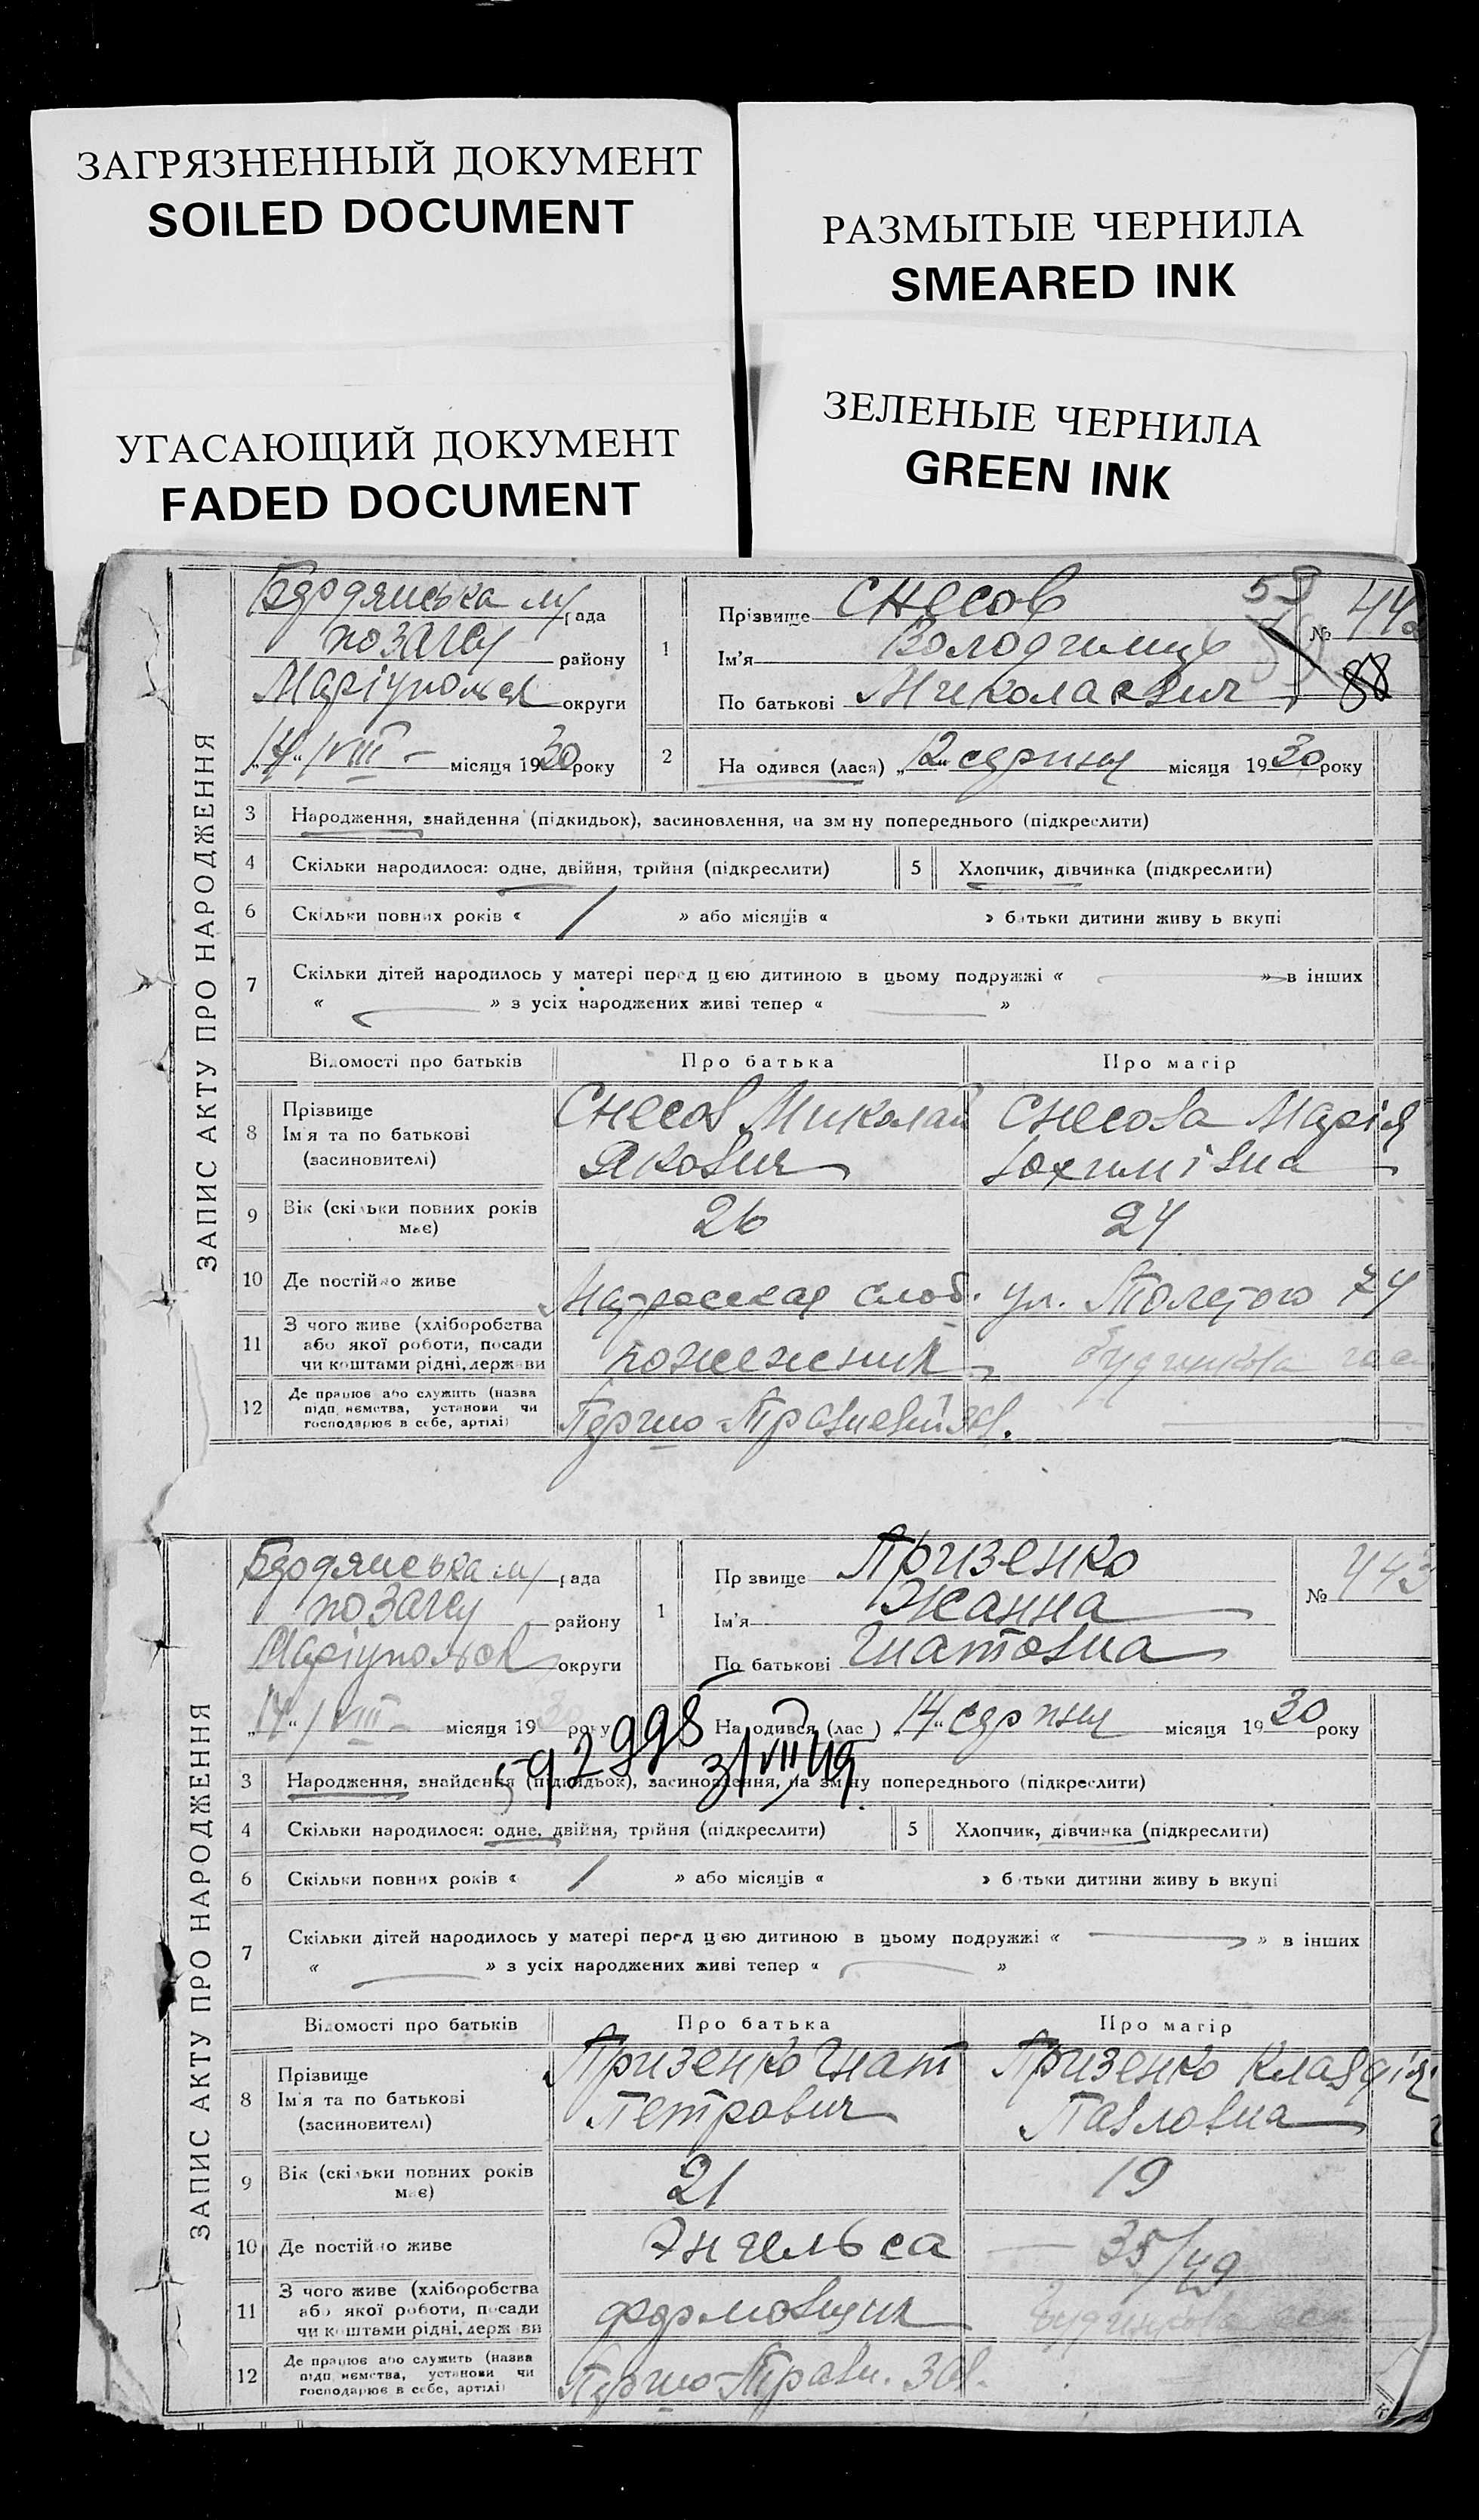 ЗАГРЯЗНЕННЫЙ ДОКУМЕНТ
SOILED DOCUMENT
РАЗМЫТЫЕ ЧЕРНИЛА
SMEARED INK
УГАСАЮЩИЙ ДОКУМЕНТ
FADED DOCUMENT
ЗЕЛЕНЫЕ ЧЕРНИЛА
GREEN INK
ЗАПИС АКТУ ПРО НАРОДЖЕННЯ
Бердянська м/рада
по загсу району
округи
"14" VIII - місяця 1930 року
1
Прізвище Снесов
Ім'я Володимир
По батькові Миколаевич
59
№ 442
88
2
На одився (лася) „12" серпня місяця 1930 року
3 Народження, знайдення (підкидьок), засиновлення, на зм ну попереднього (підкреслити)
4 Скільки народилося: одне, двійня, трійня (підкреслити)
5 Хлопчик, дівчинка (підкреслити)
6 Скільки повних років « / » або місяців « » батьки дитини живу ь вкупі
7 Скільки дітей народилось у матері перед цією дитиною в цьому подружжі « — » в інших
« — » з усіх народжених живі тепер « — »
Відомості про батьків Про батька Про матір
8 Прізвище
Ім'я та по батькові
(засиновителі)
Снесов Миколай
Якович
Снесова Марія
Юхимівна
9 Вік (скільки повних років
має)
26 24
10 Де постійно живе Матросская слоб. ул. Толстого 74
11 З чого живе (хліборобства
або якої роботи, посади
чи коштами рідні, держави
пожежник
12 Де працює або служить (назва
підп иємства, установи чи
господарює в себе, артілі)
Першо-Травневий зав.
ЗАПИС АКТУ ПРО НАРОДЖЕННЯ
Бердянська м/рада
по загсу району
округи
"14" VIII - місяця 1930 року
1
Пр звище Призенко
Ім'я Жанна
По батькові Гнатовна
№ 443
2
На одився (лас ) „14" серпня місяця 1930 року
592998 31/VII 49
3 Народження, знайдення (підкидьок), засиновлення, на зміну попереднього (підкреслити)
4 Скільки народилося: одне, двійня, трійня (підкреслити)
5 Хлопчик, дівчинка (підкреслити)
6 Скільки повних років « / » або місяців « » б тьки дитини живу ь вкупі
7 Скільки дітей народилось у матері перед цією дитиною в цьому подружжі « — » в інших
« — » з усіх народжених живі тепер « — »
Відомості про батьків Про батька Про матір
8 Прізвище
Ім'я та по батькові
(засиновителі)
Призенко Гнат
Петрович
Призенко Клавдія
Павловна
9 Вік (скільки повних років
має)
21 19
10 Де постійно живе Энгельса — 35/49
11 З чого живе (хліборобства
або якої роботи, посади
чи коштами рідні, держ ви
формовщик
12 Де працює або служить (назва
підп иємства, установи чи
господарює в себе, артілі)
Першо-Травн. зав.